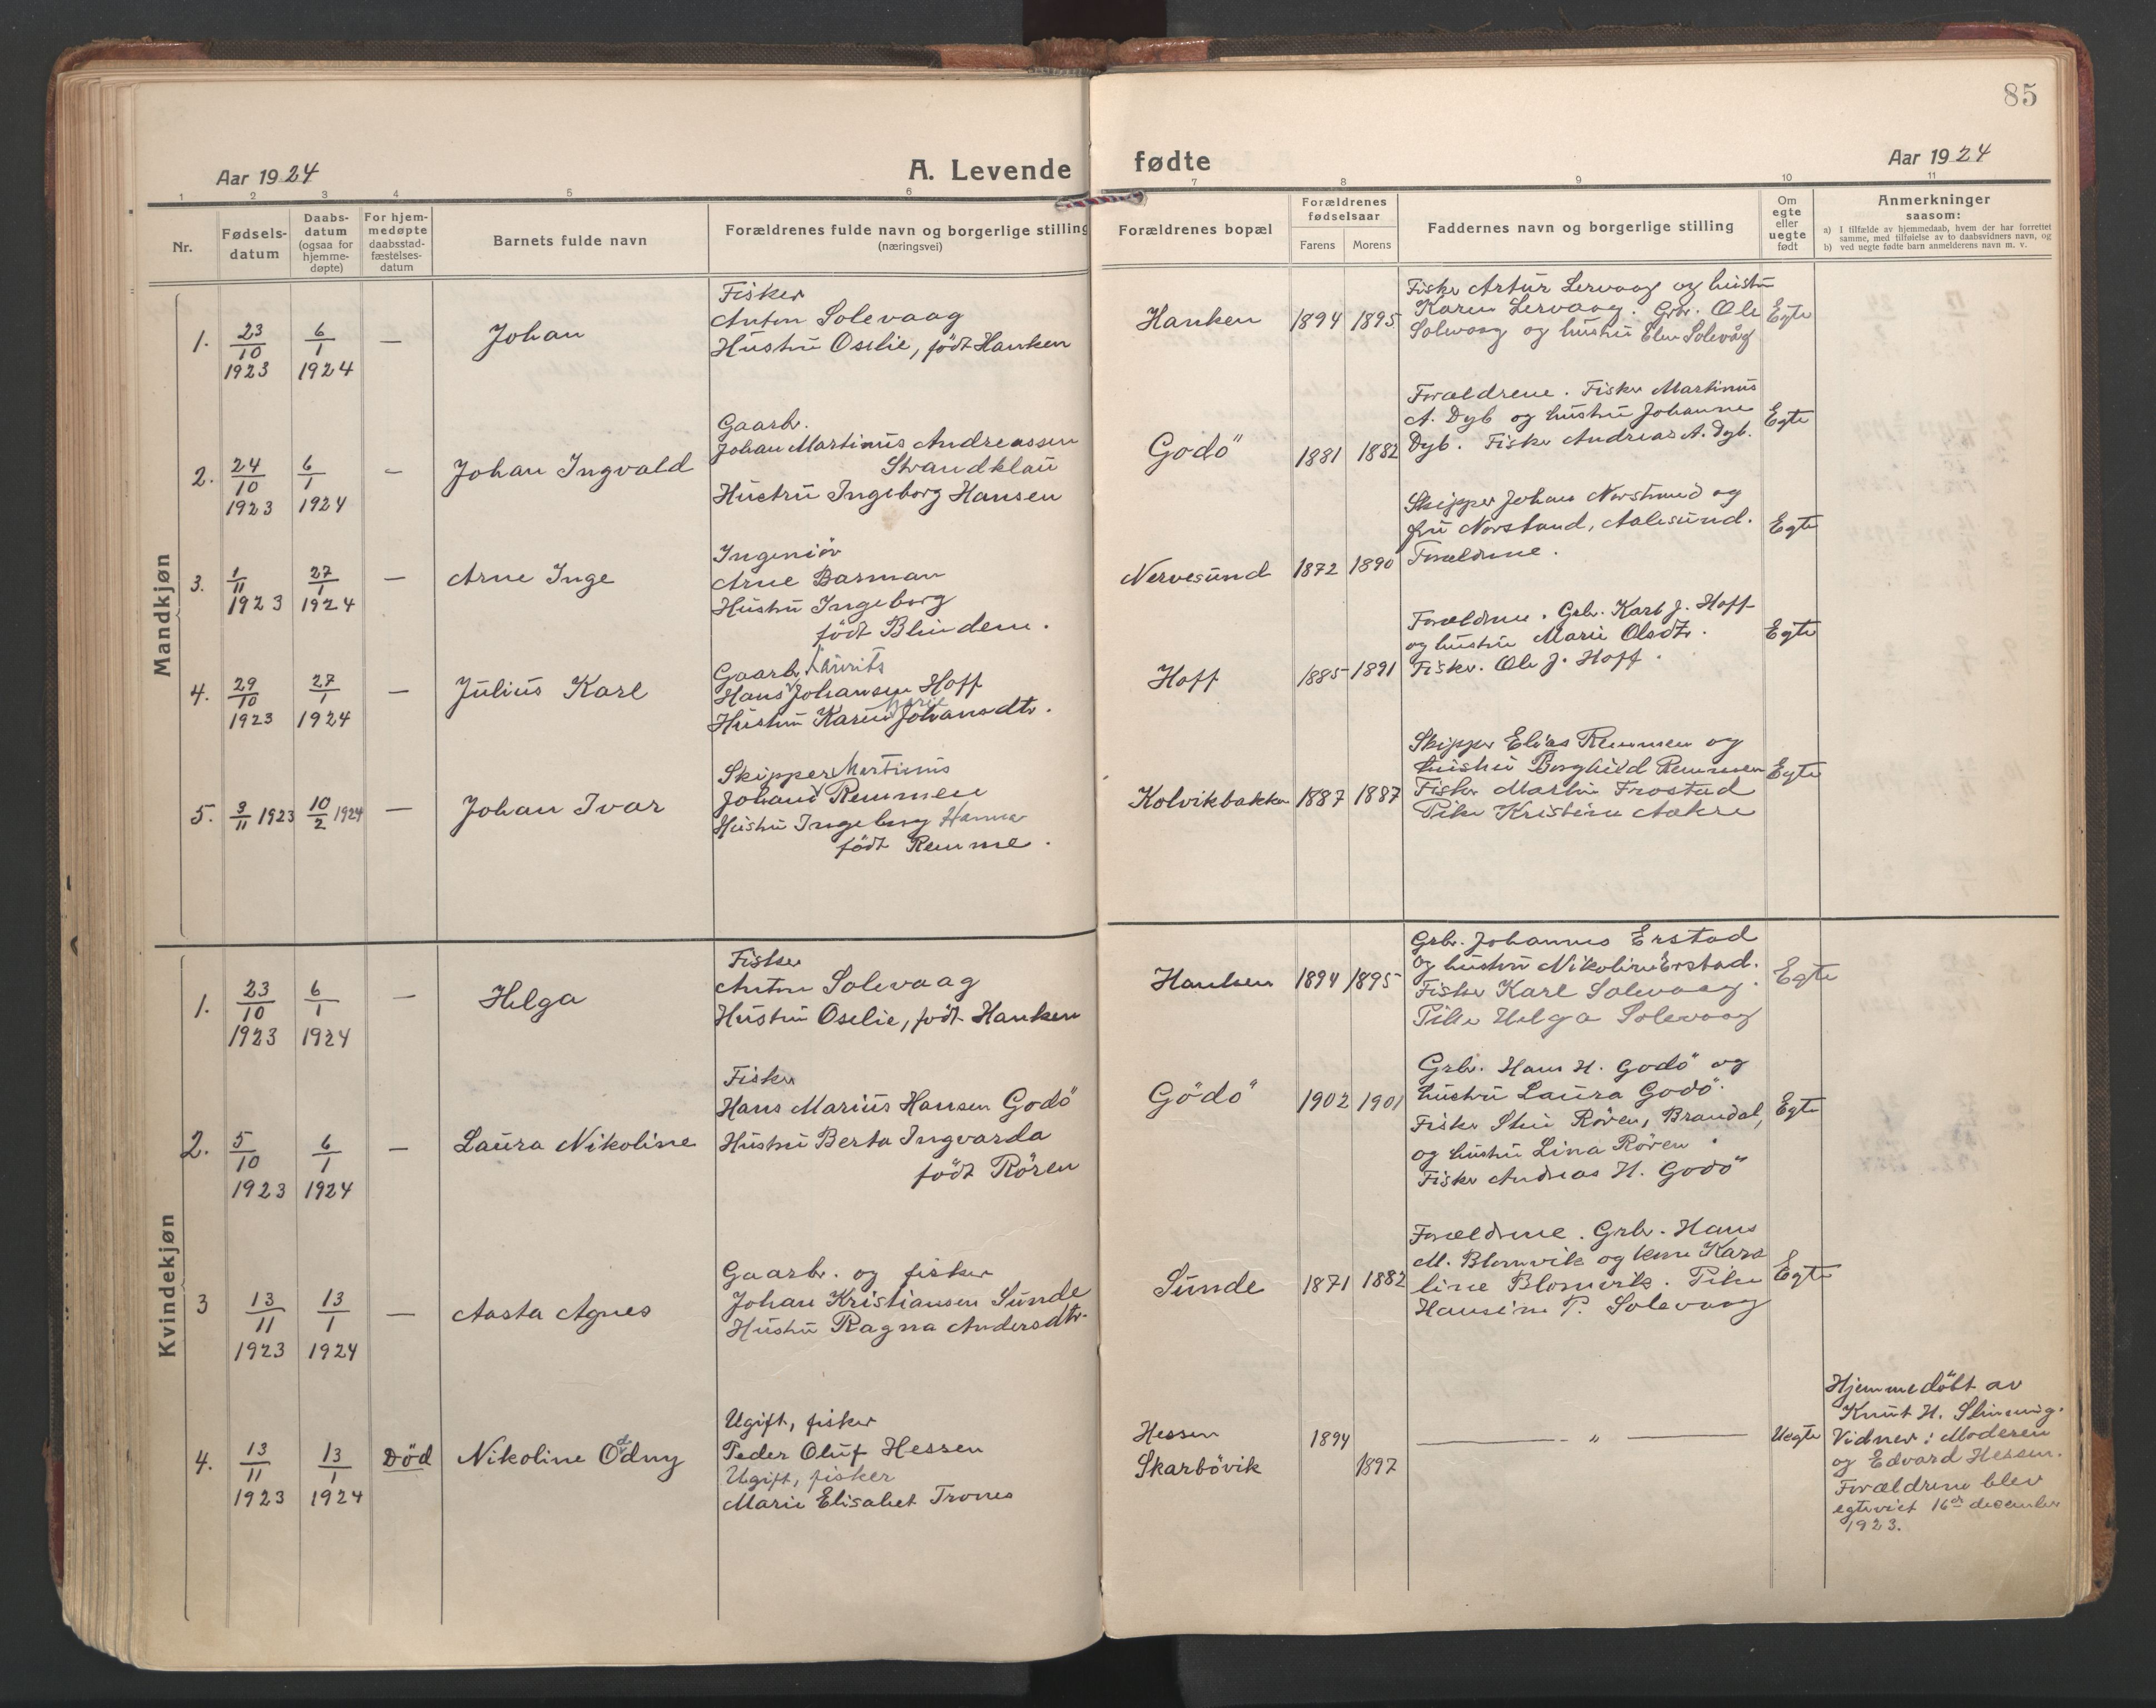 85
Aar 1924
A. Levende fødte
Aar 1924
1 2 3 4 5 6 7 8 9 10 11
Nr.
Fødsels-
datum
Daabs-
datum
(ogsaa for
hjemme-
døpte)
For hjem-
medøpte
daabsstad-
fæstelses-
datum
Barnets fulde navn
Forældrenes fulde navn og borgerlige stilling
(næringsvei)
Forældrenes bopæl
Forældrenes
fødselsaar
Farens Morens
Faddernes navn og borgerlige stilling
Om
egte
eller
uegte
født
Anmerkninger
saasom:
a) I tilfælde av hjemmedaab, hvem der har forrettet
samme, med tilføielse av to daabsvidners navn, og
b) ved uegte fødte barn anmelderens navn m. v.
Mandkjøn
1. 23/10 1923
6/1 1924
—
Johan
Fisker
Anton Solevaag
Hustru Oselie, født Hanken
Hanken
1894 1895
Fisker Artur Lervaag og hustru
Karen Lervaag. Grb. Ole
Solevaag og hustru Elen Solevåg
Egte
2. 24/10 1923
6/1 1924
—
Johan Ingvald
Gaarbr.
Johan Martinus Andreassen
Strandklau
Hustru Ingeborg Hansen
Godö
1881 1882
Forældrene. Fisker Martinus
A. Dyb og hustru Johanne
Dyb. Fisker Andreas A. Dyb.
Egte
3. 1/11 1923
27/1 1924
—
Arne Inge
Ingeniör
Arne Barman
Hustru Ingeborg
födt Blindem.
Nervesund
1872 1890
Skipper Johan Norstrand og
fru Norstrand, Aalesund.
Forældrene.
Egte
4. 29/10 1923
27/1 1924
—
Julius Karl
Gaarb. Laurits
Hans Johansen Hoff
Hustru Karen Marie Johansdtr.
Hoff
1885 1891
Forældrene. Grb. Karl J. Hoff
og hustru Marie Olsdtr.
Fisker Ole J. Hoff.
Egte
5. 3/11 1923
10/2 1924
—
Johan Ivar
Skipper Martinus
Johan Remmen
Hustru Ingeborg Hanna
födt Remme.
Kolvikbakken
1887 1887
Skipper Elias Remmen og
hustru Borghild Remmen
Fisker Martin Frostad
Pike Kristine Aakre
Egte
Kvindekjøn
1. 23/10 1923
6/1 1924
—
Helga
Fisker
Anton Solevaag
Hustru Oselie, født Hanken
Hanken
1894 1895
Grb. Johannes Erstad
og hustru Nikoline Erstad.
Fisker Karl Solevaag.
Pike Helga Solevaag
Egte
2. 5/10 1923
6/1 1924
—
Laura Nikoline
Fisker
Hans Marius Hansen Godö
Hustru Berta Ingvarda
födt Rören
Godö
1902 1901
Grb. Hans H. Godö og
hustru Laura Godö.
Fisker Rören, Brandal,
og hustru Lina Rören.
Fisker Andreas H. Godö
Egte
3 13/11 1923
13/1 1924
—
Aasta Agnes
Gaarbr. og fisker
Johan Kristiansen Sunde
Hustru Ragna Andersdtr.
Sunde
1871 1882
Forældrene. Grb. Hans
M. Blomvik og kone Karo
line Blomvik. Pike
Hansine P. Solevaag
Egte
4. 13/11 1923
13/1 1924
Död
Nikoline Odny
Ugift, fisker
Peder Oluf Hessen
Ugift, fisker
Marie Elisabet Trones
Hessen
Skarbövik
1894
1897
— „ —
Uegte
Hjemmedöbt av
Knut H. Slinning.
Vidner: Moderen
og Edvard Hessen.
Forældrene blev
egteviet 16de desember
1923.